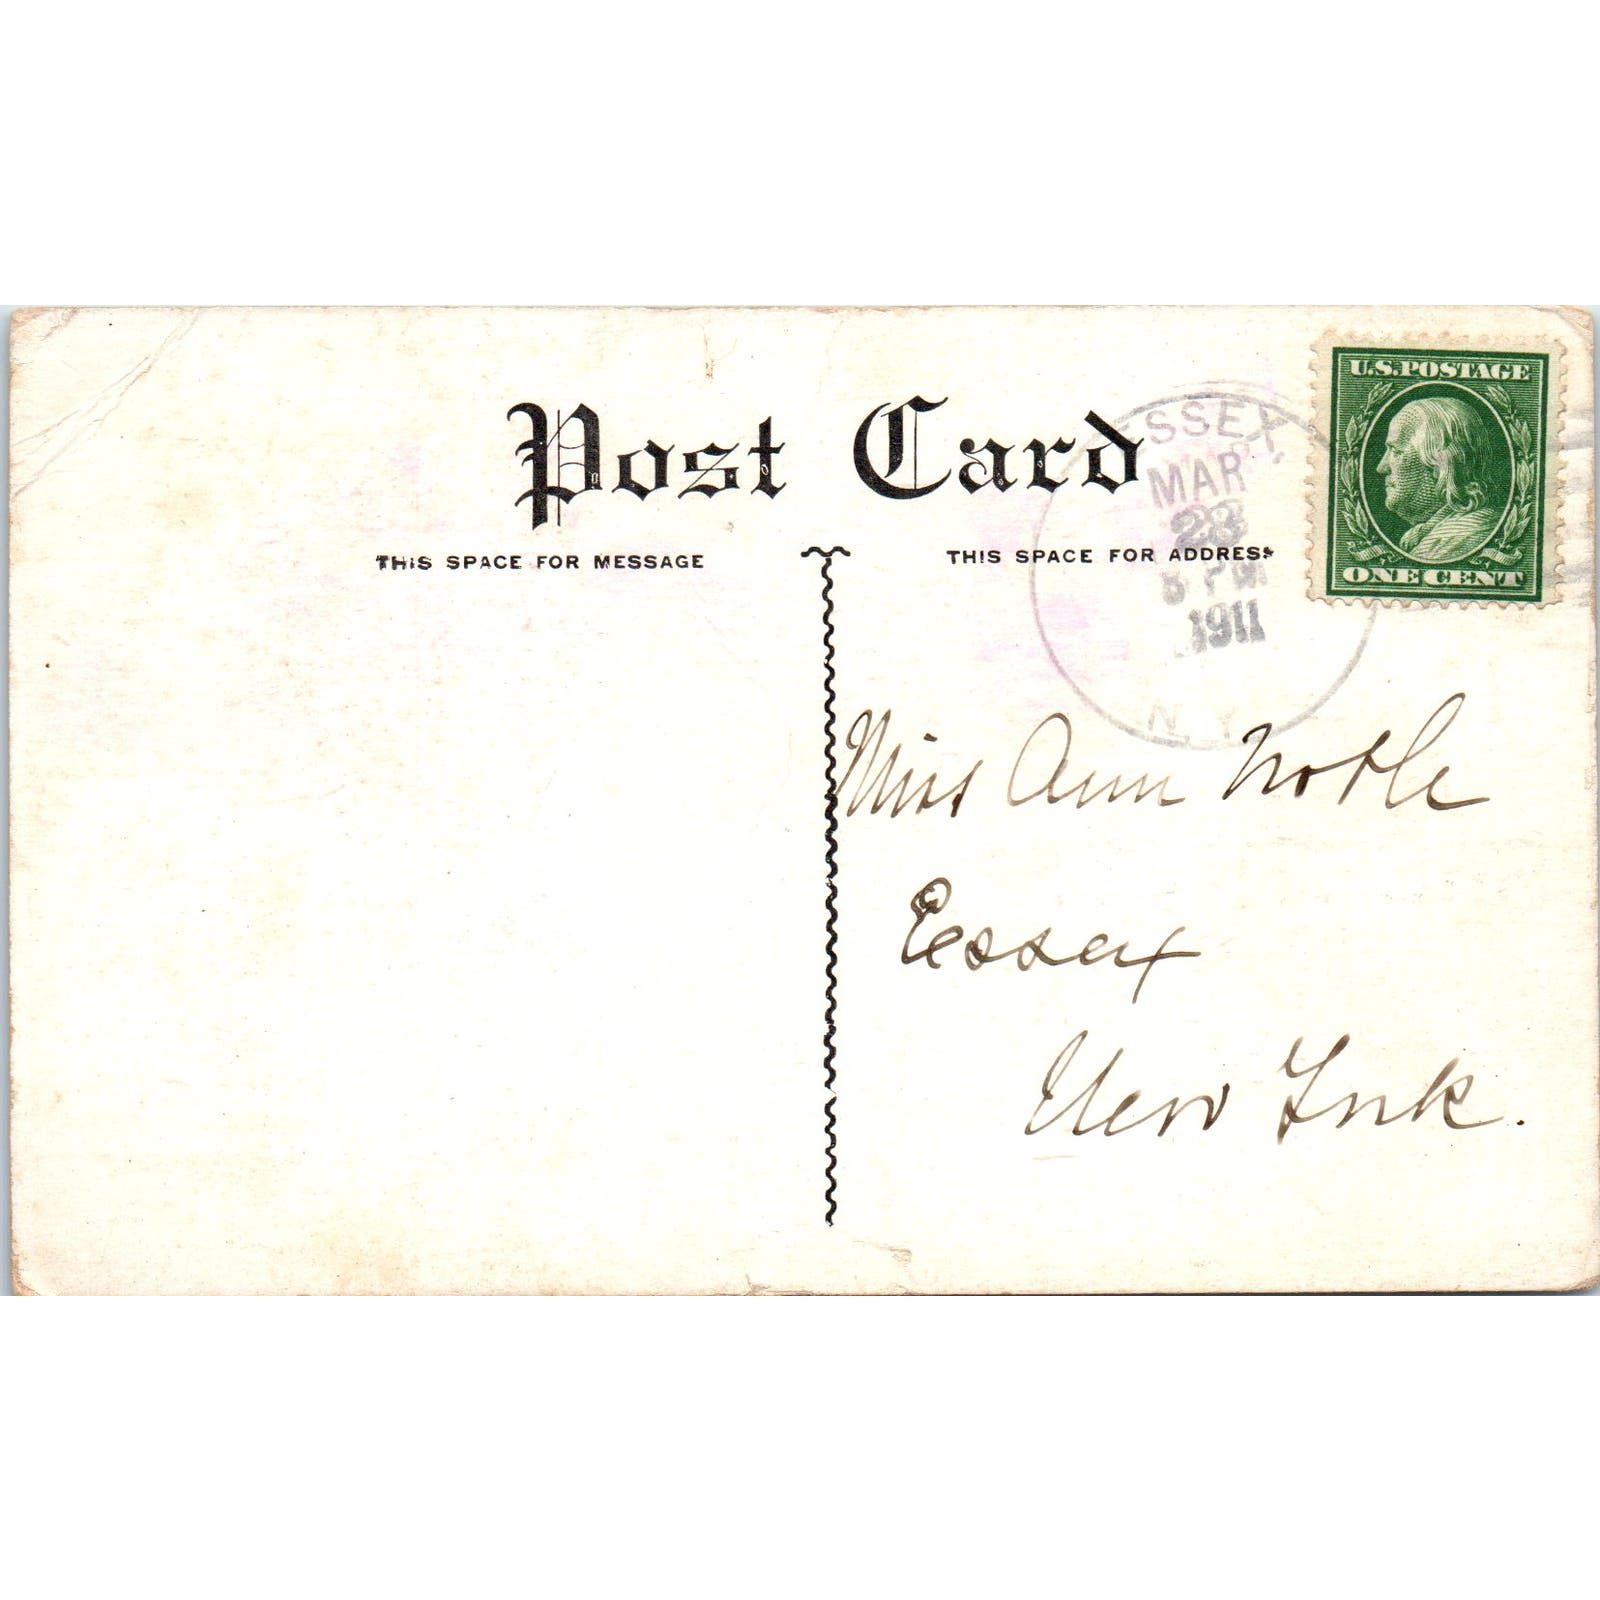 Post Card
THIS SPACE FOR MESSAGE
THIS SPACE FOR ADDRESS
U.S. POSTAGE
ONE CENT
ESSEX,
MAR
28
PM
1911
N.Y.
Miss Ann Noble
Essex
New York.